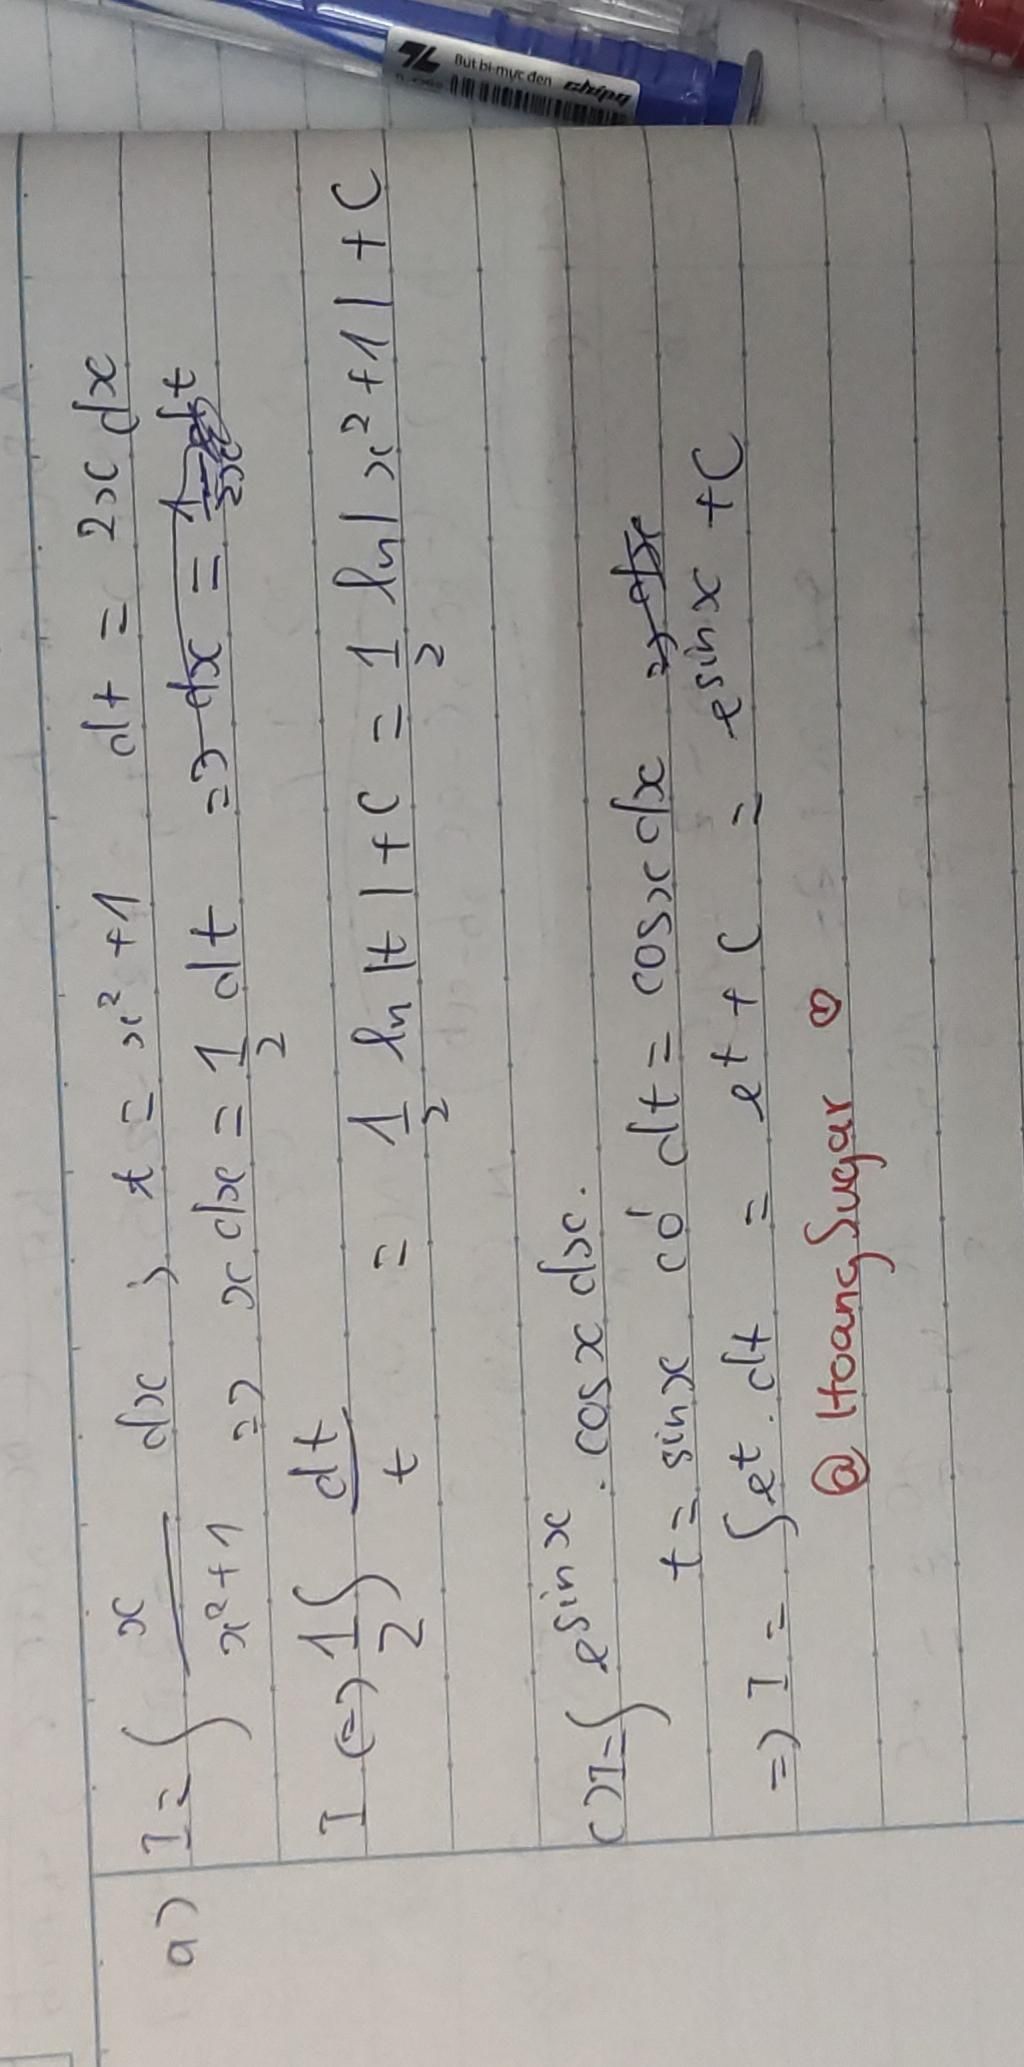 Bút bi-mực đen
a) I = ∫ x/(x²+1) dx ; t = x²+1 dt = 2x dx
=> x dx = 1/2 dt => dx = 1/2x dt
I (=) 1/2 ∫ dt/t = 1/2 ln|t|+C = 1/2 ln|x²+1|+C
c) I = ∫ e^sinx . cosx dx.
t = sinx có dt = cosx dx => dx
=> I = ∫ e^t . dt = e^t + C = e^sinx + C
@ HoangSugar ♡